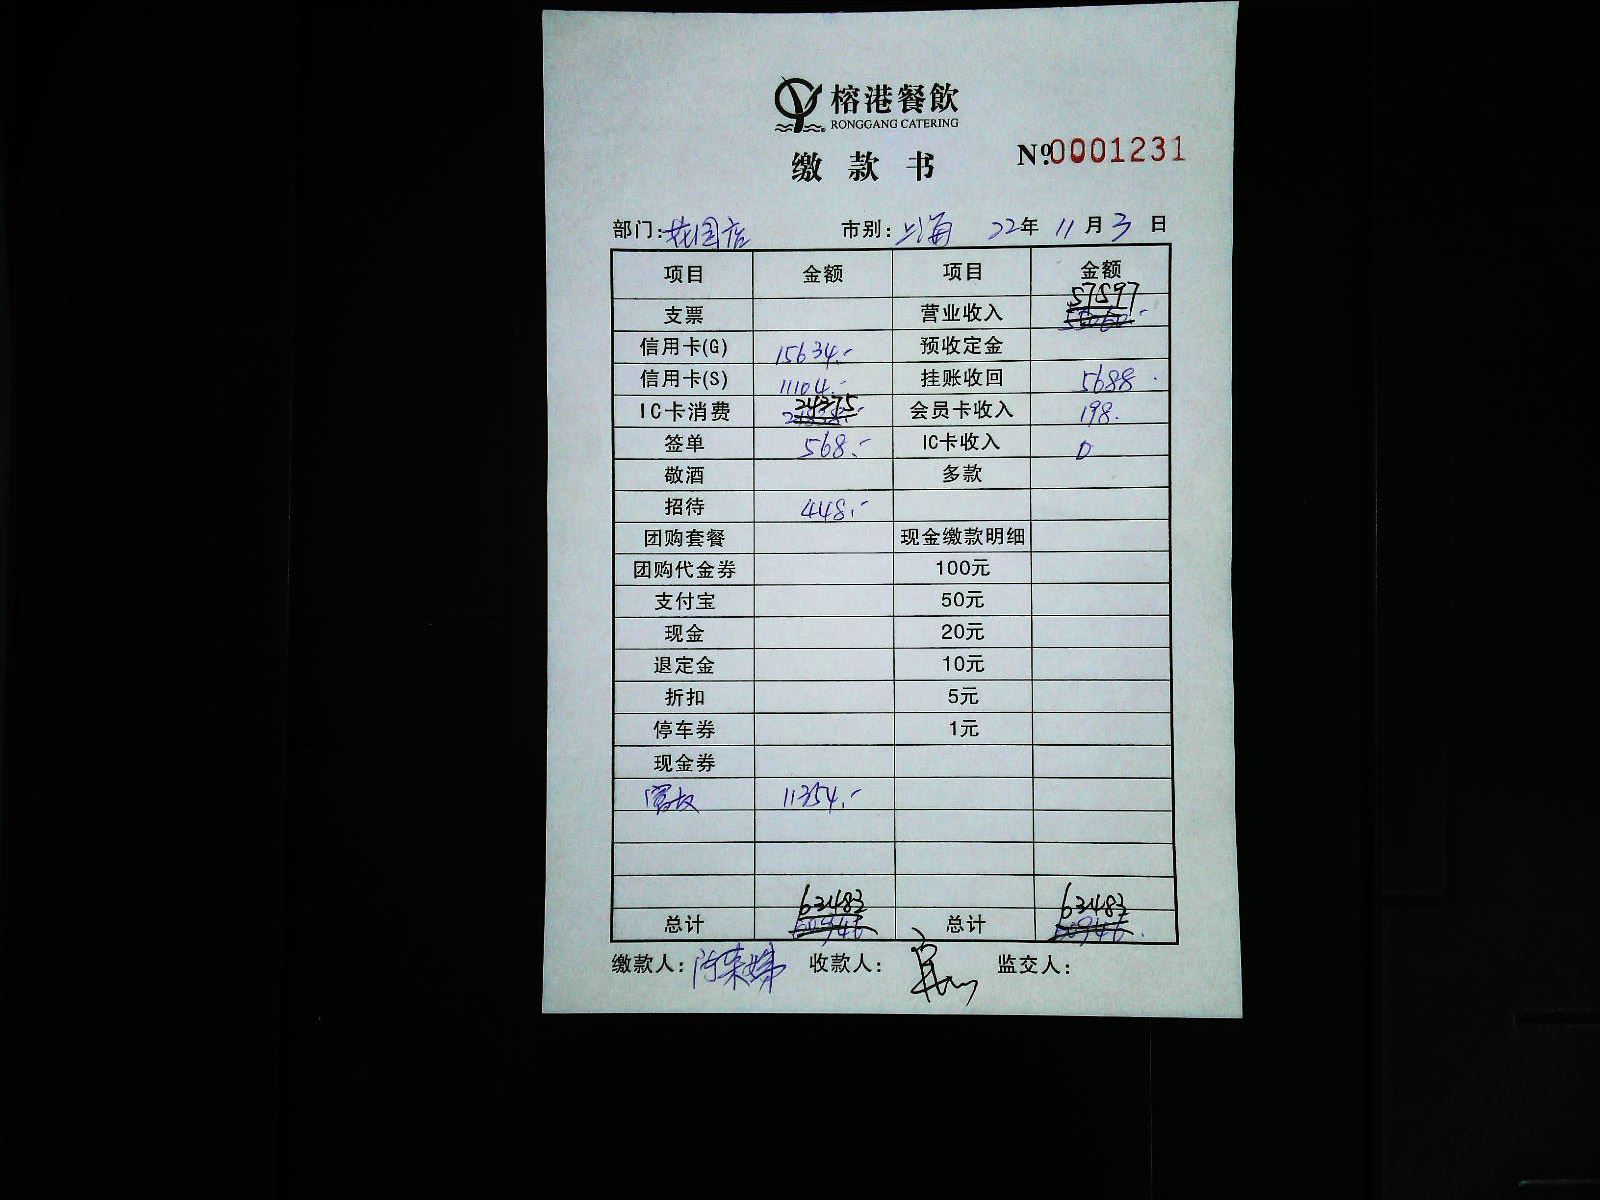 榕港餐飲
RONGGANG CATERING
缴款书 №0001231
部门: 市别:上海 22年11月3日
项目 金额 项目 金额
支票 营业收入 57597
信用卡(G) 15634.- 预收定金
信用卡(S) 11104.- 挂账收回 5688.
IC卡消费 24375 会员卡收入 198.
签单 568.- IC卡收入 0
敬酒 多款
招待 448.-
团购套餐 现金缴款明细
团购代金券 100元
支付宝 50元
现金 20元
退定金 10元
折扣 5元
停车券 1元
现金券
11354.-
63483 63483
总计 60946 总计 60946.
缴款人: 收款人: 监交人: